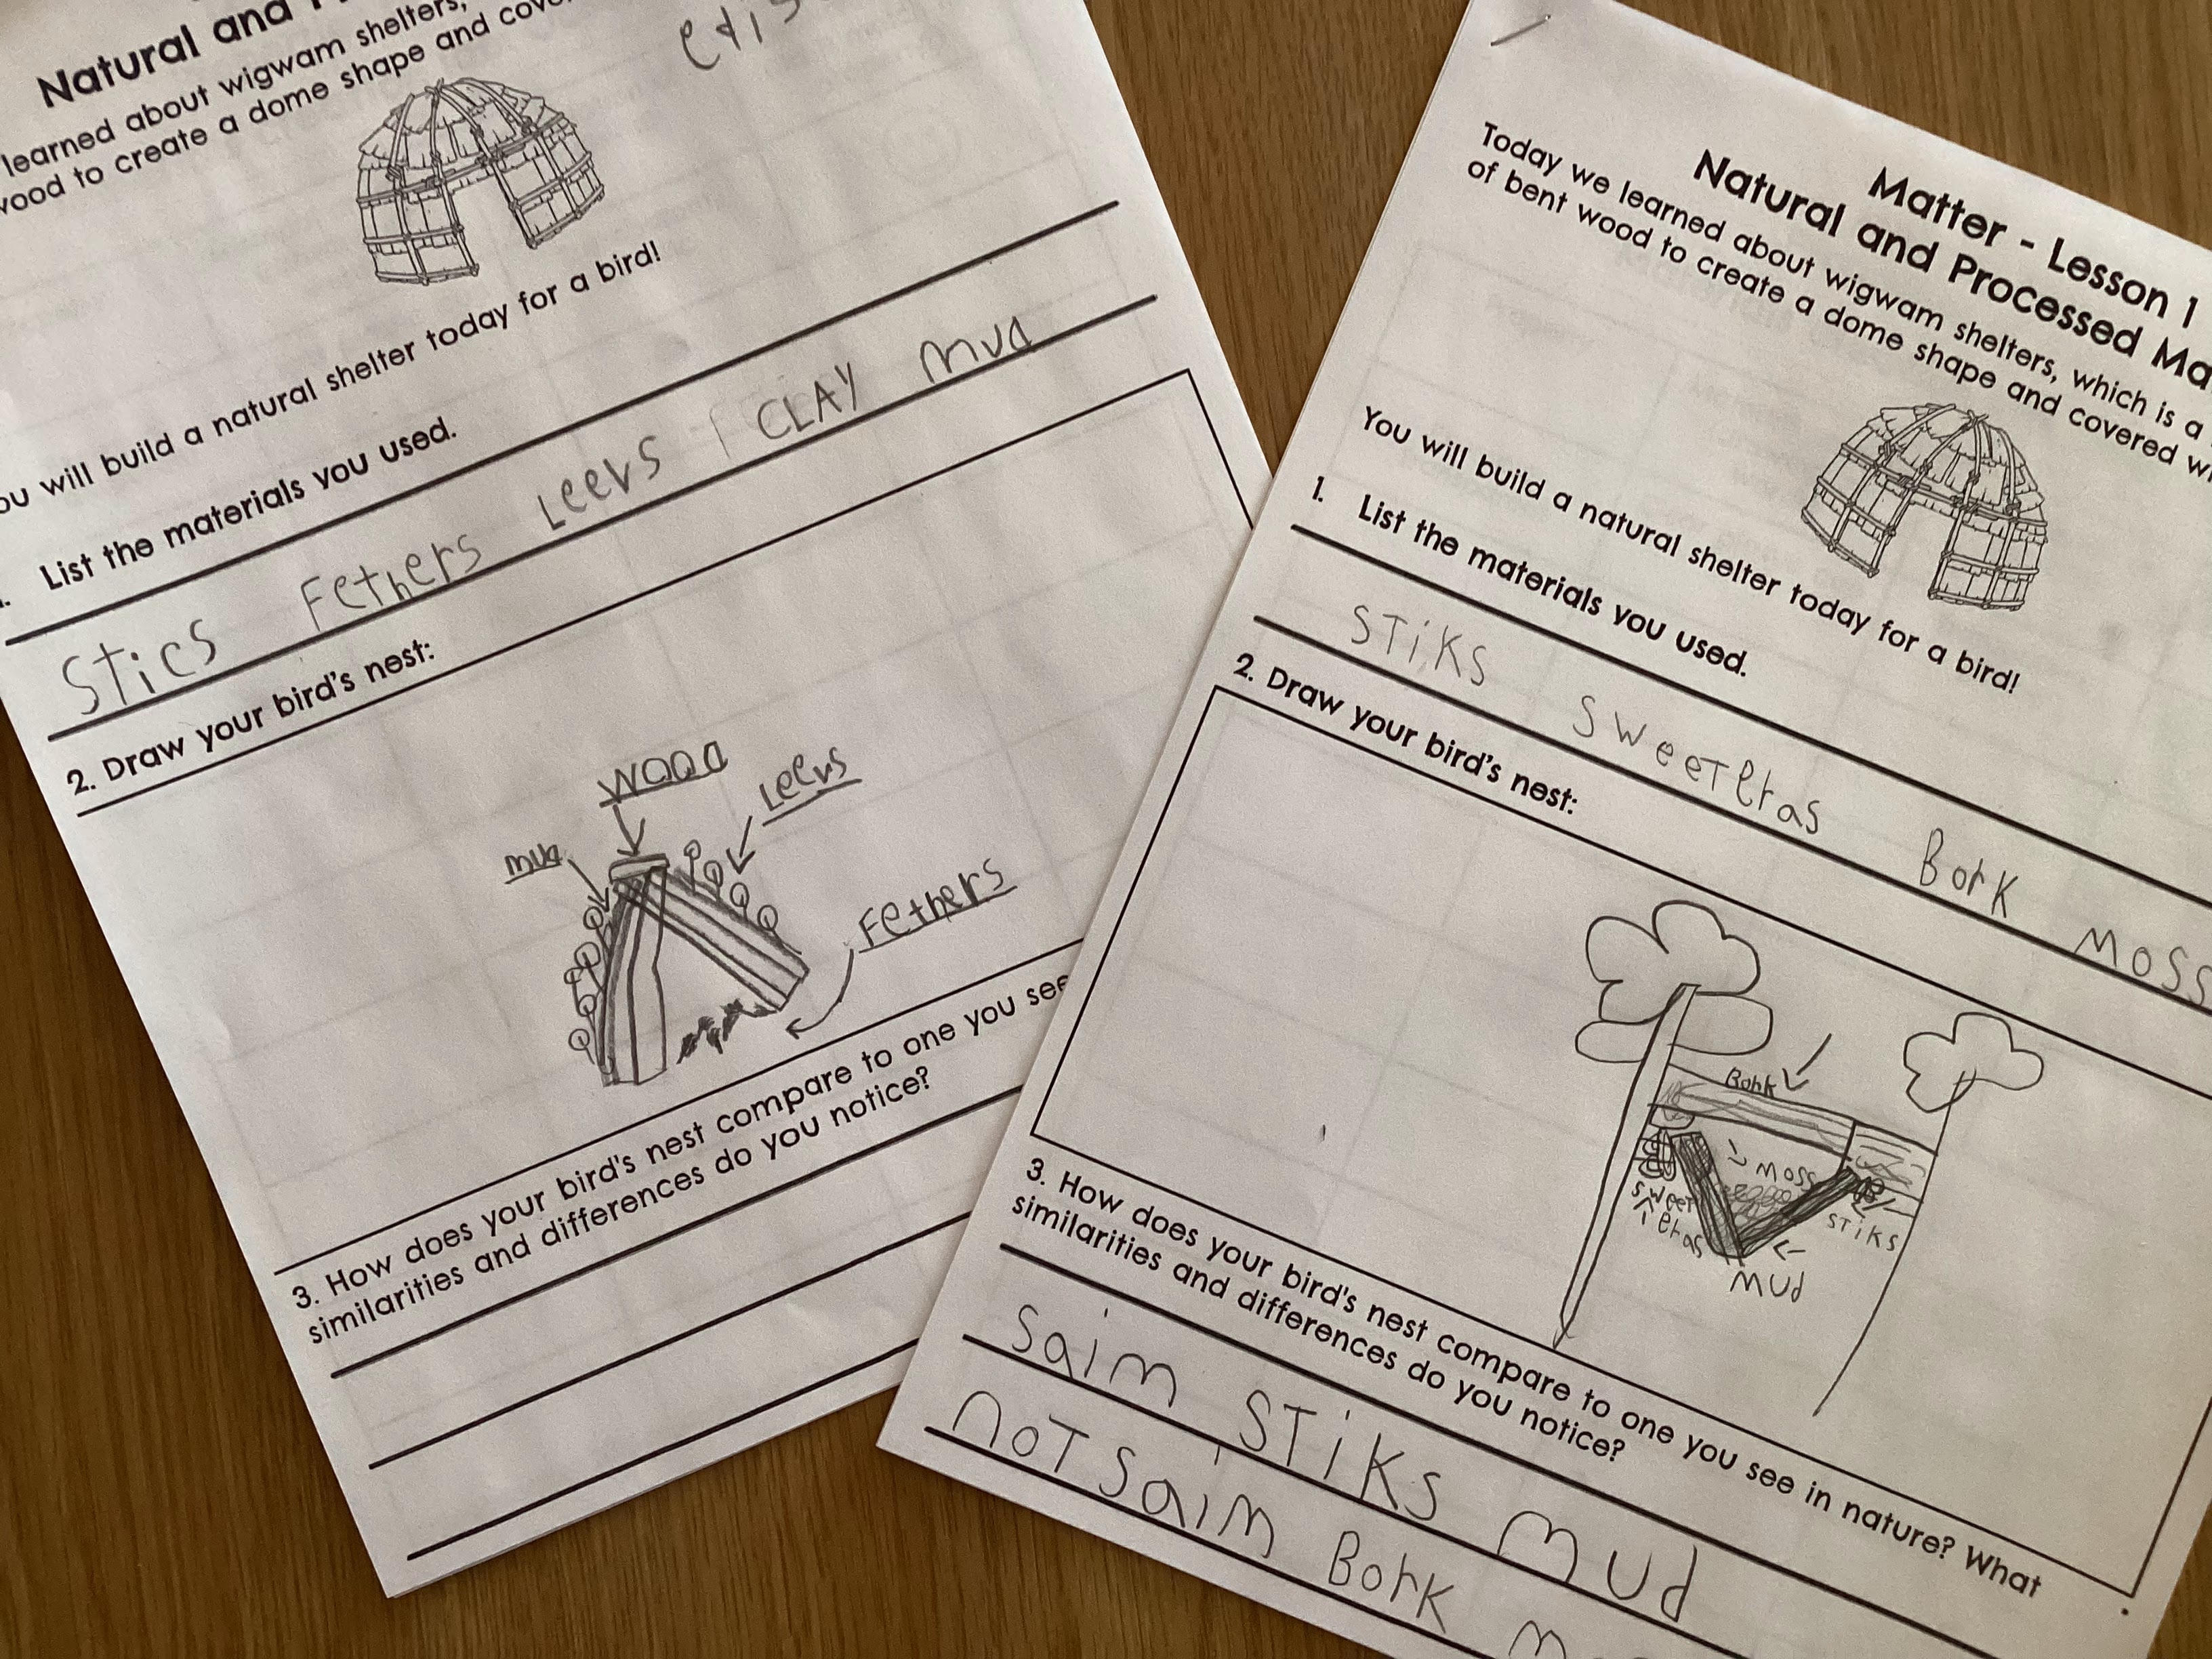 Natural and
learned about wigwam shelters,
wood to create a dome shape and
You will build a natural shelter today for a bird!
List the materials you used.
Stics Fethers Leevs CLAY mud
2. Draw your bird's nest:
wood
Leevs
mud
Fethers
3. How does your bird's nest compare to one you see
similarities and differences do you notice?
Matter - Lesson 1
Natural and Processed
Today we learned about wigwam shelters, which is a
of bent wood to create a dome shape and covered
You will build a natural shelter today for a bird!
1. List the materials you used.
STiKS SweeTgras Bork moss
2. Draw your bird's nest:
Bork
moss
sweet
gras
STiKS
mud
3. How does your bird's nest compare to one you see in nature? What
similarities and differences do you notice?
Saim STiKS mud
noT Saim Bork